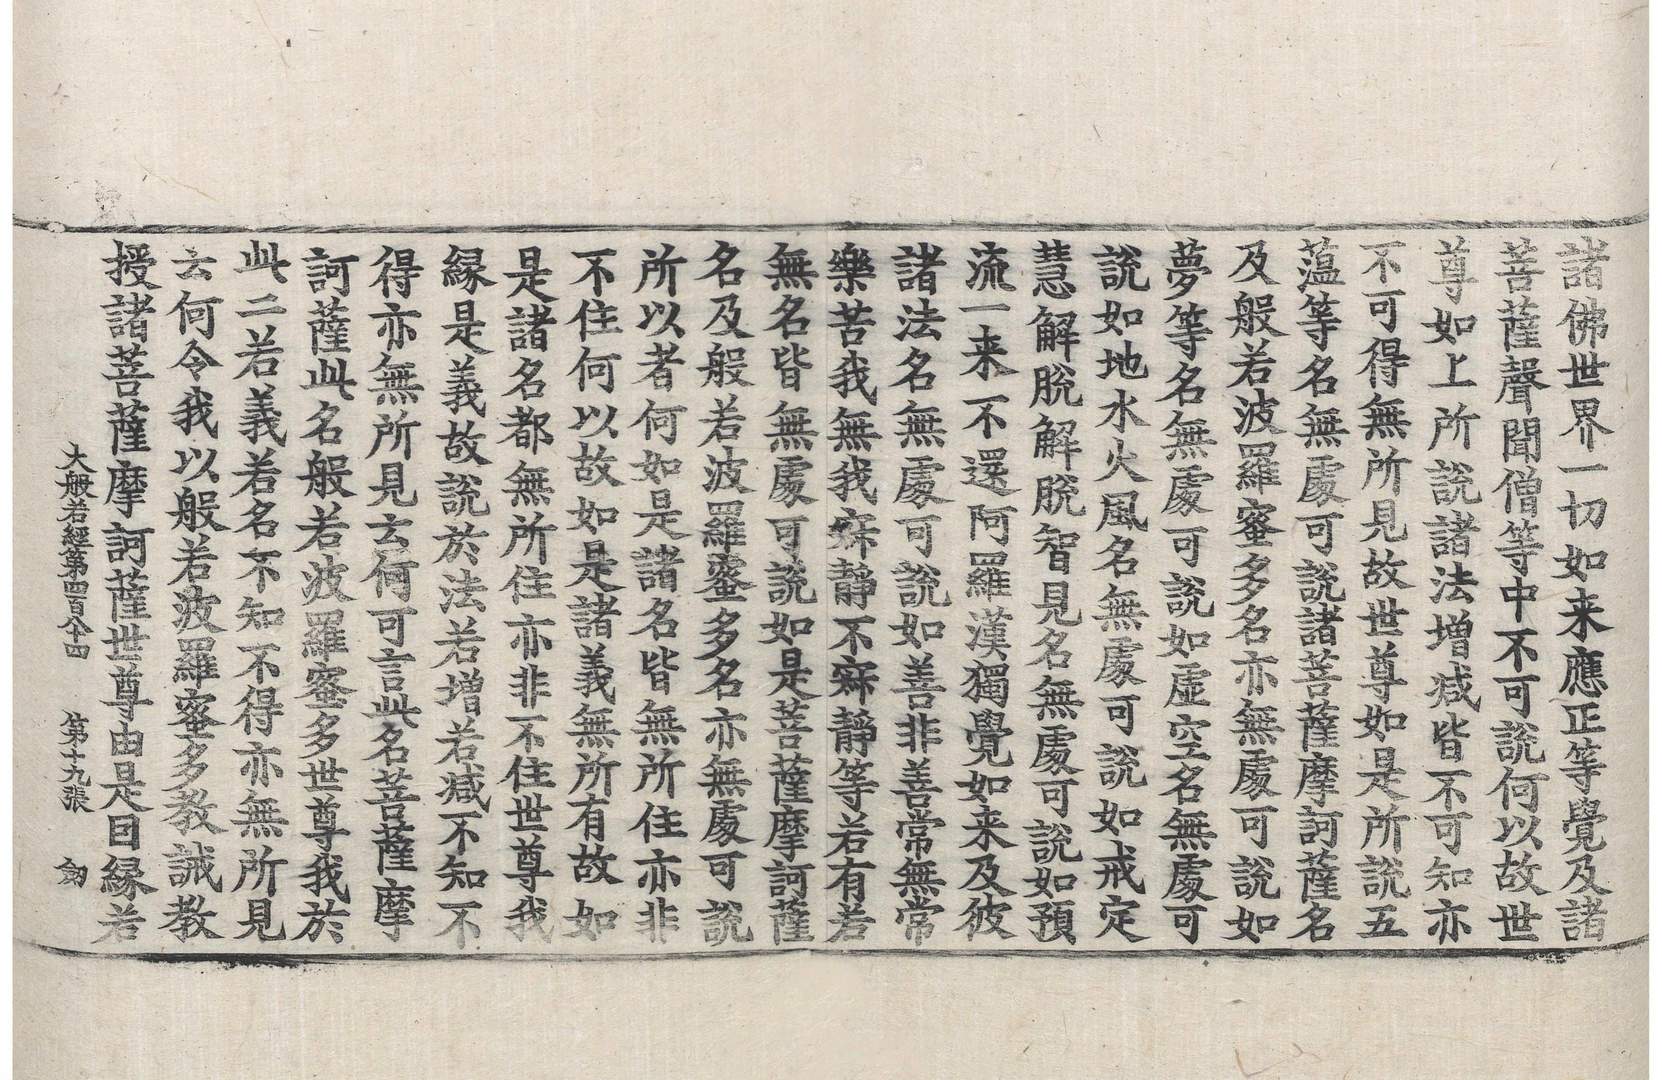 諸佛世界一切如来應正等覺及諸
菩薩聲聞僧等中不可說何以故世
尊如上所說諸法增减皆不可知亦
不可得無所見故世尊如是所說五
薀等名無處可說諸菩薩摩訶薩名
及般若波羅蜜多名亦無處可說如
夢等名無處可說如虛空名無處可
說如地水火風名無處可說如戒定
慧解脫解脫智見名無處可說如預
流一来不還阿羅漢獨覺如来及彼
諸法名無處可說如善非善常無常
樂苦我無我寂靜不寂靜等若有若
無名皆無處可說如是菩薩摩訶薩
名及般若波羅蜜多名亦無處可說
所以者何如是諸名皆無所住亦非
不住何以故如是諸義無所有故如
是諸名都無所住亦非不住世尊我
緣是義故說於法若增若減不知不
得亦無所見云何可言此名菩薩摩
訶薩此名般若波羅蜜多世尊我於
此二若義若名不知不得亦無所見
云何令我以般若波羅蜜多教誡教
授諸菩薩摩訶薩世尊由是因緣若
大般若經第四百八十四 第十九張 劒